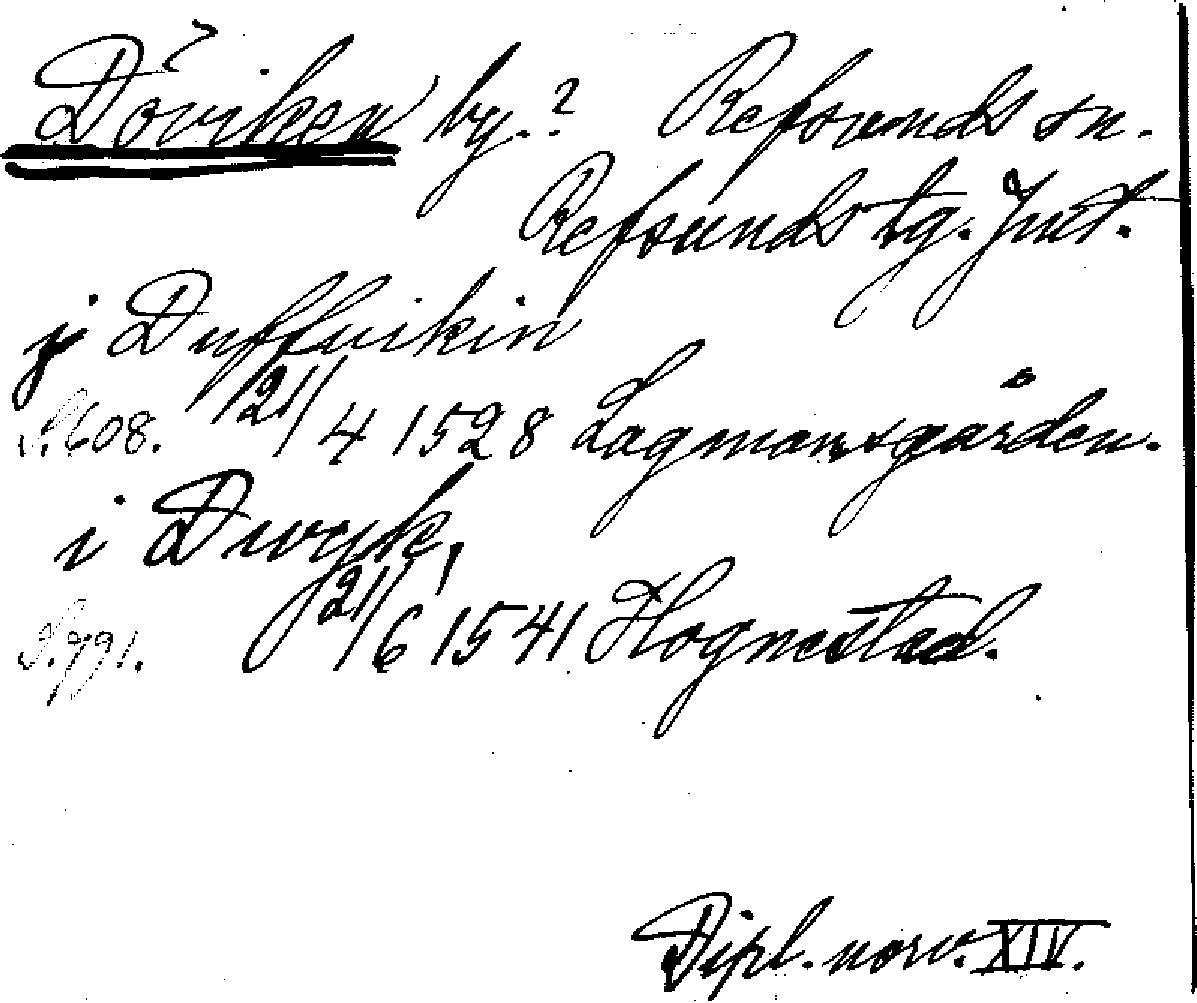 Döviken by.? Refsunds sn.
Refsunds tg. Jmt.
j Duffuikin
S. 608. 21/4 1528 Lagmansgården.
i Dwyk,
S. 791. 21/6 1541 Hognestad.
Dipl. norv. XIV.